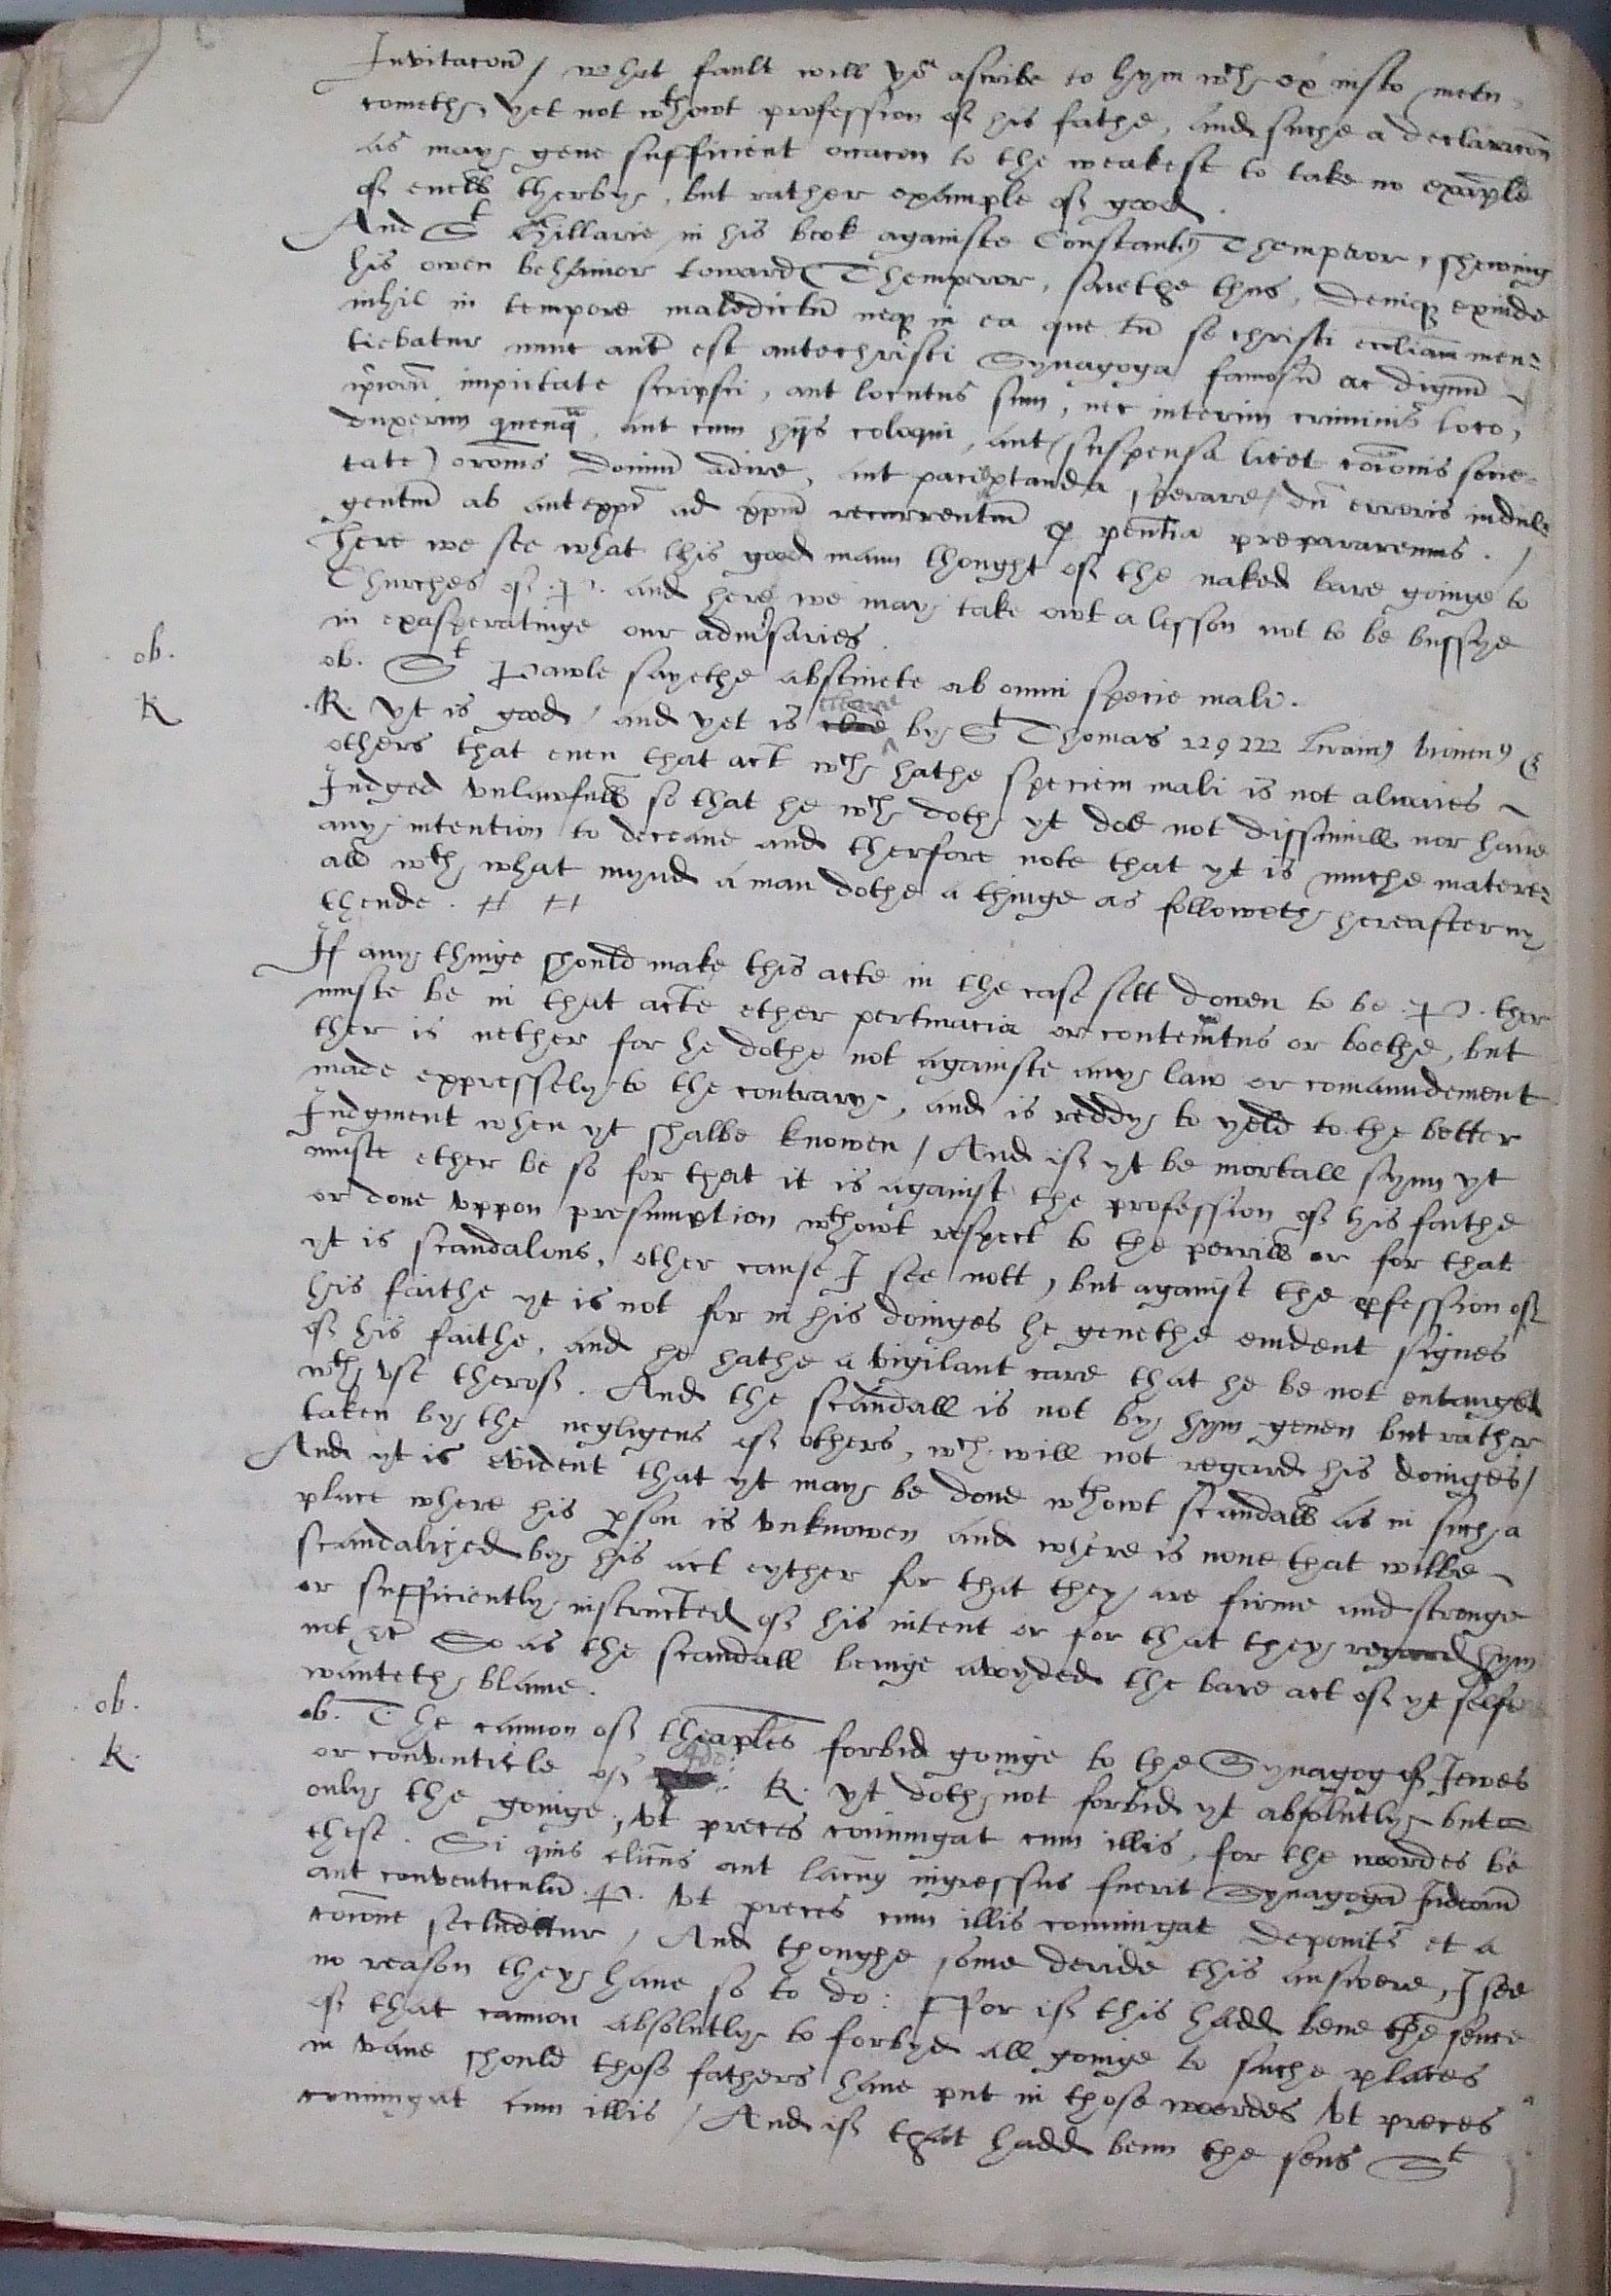 Invitacon̄ / what fault will yoᵘ ascribe to hym wᶜʰ ex iusto metu
comethe, yet not wᵗʰowt profession of his fathe, and suche a declaracon̄
as may geue sufficient occacon to the weakest to take no exāple
of euell therby, but rather example of good.
And Sᵗ Hillarie in his book againste Constantiꝰ Themperor, shewing
his owen behauior toward Themperor, saiethe thus, Deniqꝫ exinde
nihil in tempore maledictū neqꝫ in ea que tū se christi eccliam men-
tiebatur nunc autē est antechristi Synagoga famosū ac dignum
ip̄orū impietate scripsi, aut locutus sum, nec interim criminis loco,
duxerim quenqᵃ, aut cum hijs coloqui, aut (suspensa licet cōionis socie-
tate) orōnis domum adire, aut paci optanda sperare, dū erroris indul-
gentiā ab antexpō ad xpm̄ recurrentem ꝑ penitētia prepararemus. /
Here we see what this good mann thought of the naked bare goinge to
Churches of .P. and here we may take owt a lesson not to be bussye
in exasperatinge our aduʳsaries.
ob.
ob. Sᵗ Pawle sayethe abstinete ab omni specie mali.
R
.R. yt is good / and yet is cleare by Sᵗ Thomas 22 q 222 &
others that euen that act wᶜʰ hathe speciem mali is not alwaies
Judged vnlawfull so that he wᶜʰ doth yt doe not dissimull nor haue
any intention to deceaue and therfore note that yt is muche matere-
all wᵗʰ what mynd a man dothe a thinge as followeth hereafter ny
thende. # #
If any thinge should make this acte in the case sett downe to be .P. ther
muste be in that acte ether pertinacia or contemtus or boethe, but
ther is nether for he dothe not againste any law or comaundement
made expressely to the contrary, and is reddy to yeld to the better
Judgment when yt shalbe knowen / And if yt be mortall synn yt
muste ether be so for that it is against the profession of his faithe
or done vppon presumption wᵗʰowt respect to the perrill or for that
yt is scandalous, other cause I see nott, but against the ꝓfession of
his faithe yt is not for in his doinges he geuethe euident signes
of his faithe, and he hathe a vigilant care that he be not entangled
wᵗʰ vse therof. And the scandall is not by hym geuen but rather
taken by the negligens of others, wᶜʰ will not regard his doinges /
And yt is evident that yt may be done wᵗʰowt scandall as in such a
place where his ꝑson is vnknowen and where is none that wilbe
scandalized by his act eyther for that they are firme and stronge
or sufficiently instructed of his intent or for that they regard hym
not &c So as the scandall beinge avoyded the bare act of yt selfe
wanteth blame.
ob.
ob. The cannon of thap̄les forbid goinge to the Synagog of Jewes
R.
or conventicle of R. yt doth not forbid yt absolutly but
only the goinge, vt preces coniungat cum illis, for the woordes be
these. Si quis clicus aut laicus ingressus fuerit Synagogā Judeorū
aut conventiculū .P. vt preces cum illis coniungat deponitʳ et a
coīone secluditur / And thoughe some deride this answere, I see
no reason they haue so to do: For if this hadd bene the sence
of that cannon absolutly to forbyd all goinge to suche places
in vane should thoss fathers haue put in those woordes vt preces
coniungat cum illis / And if that hadd benn the sens Sᵗ